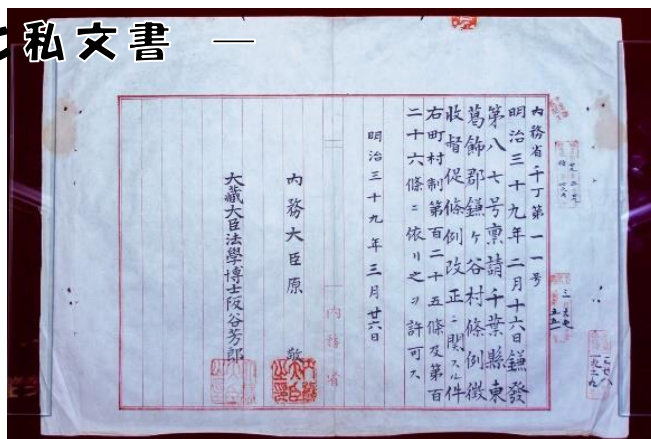 私文書 —
内務省千丁第一一号
明治三十九年二月十六日鎌發
第八七号稟請千葉縣東
葛飾郡鎌ケ谷村條例徴
收督促條例改正ニ関スル件
右町村制第百二十五條及第百
二十六條ニ依リ之ヲ許可ス
明治三十九年三月廿六日
内務大臣原 敬
大藏大臣法學博士阪谷芳郎
内務省